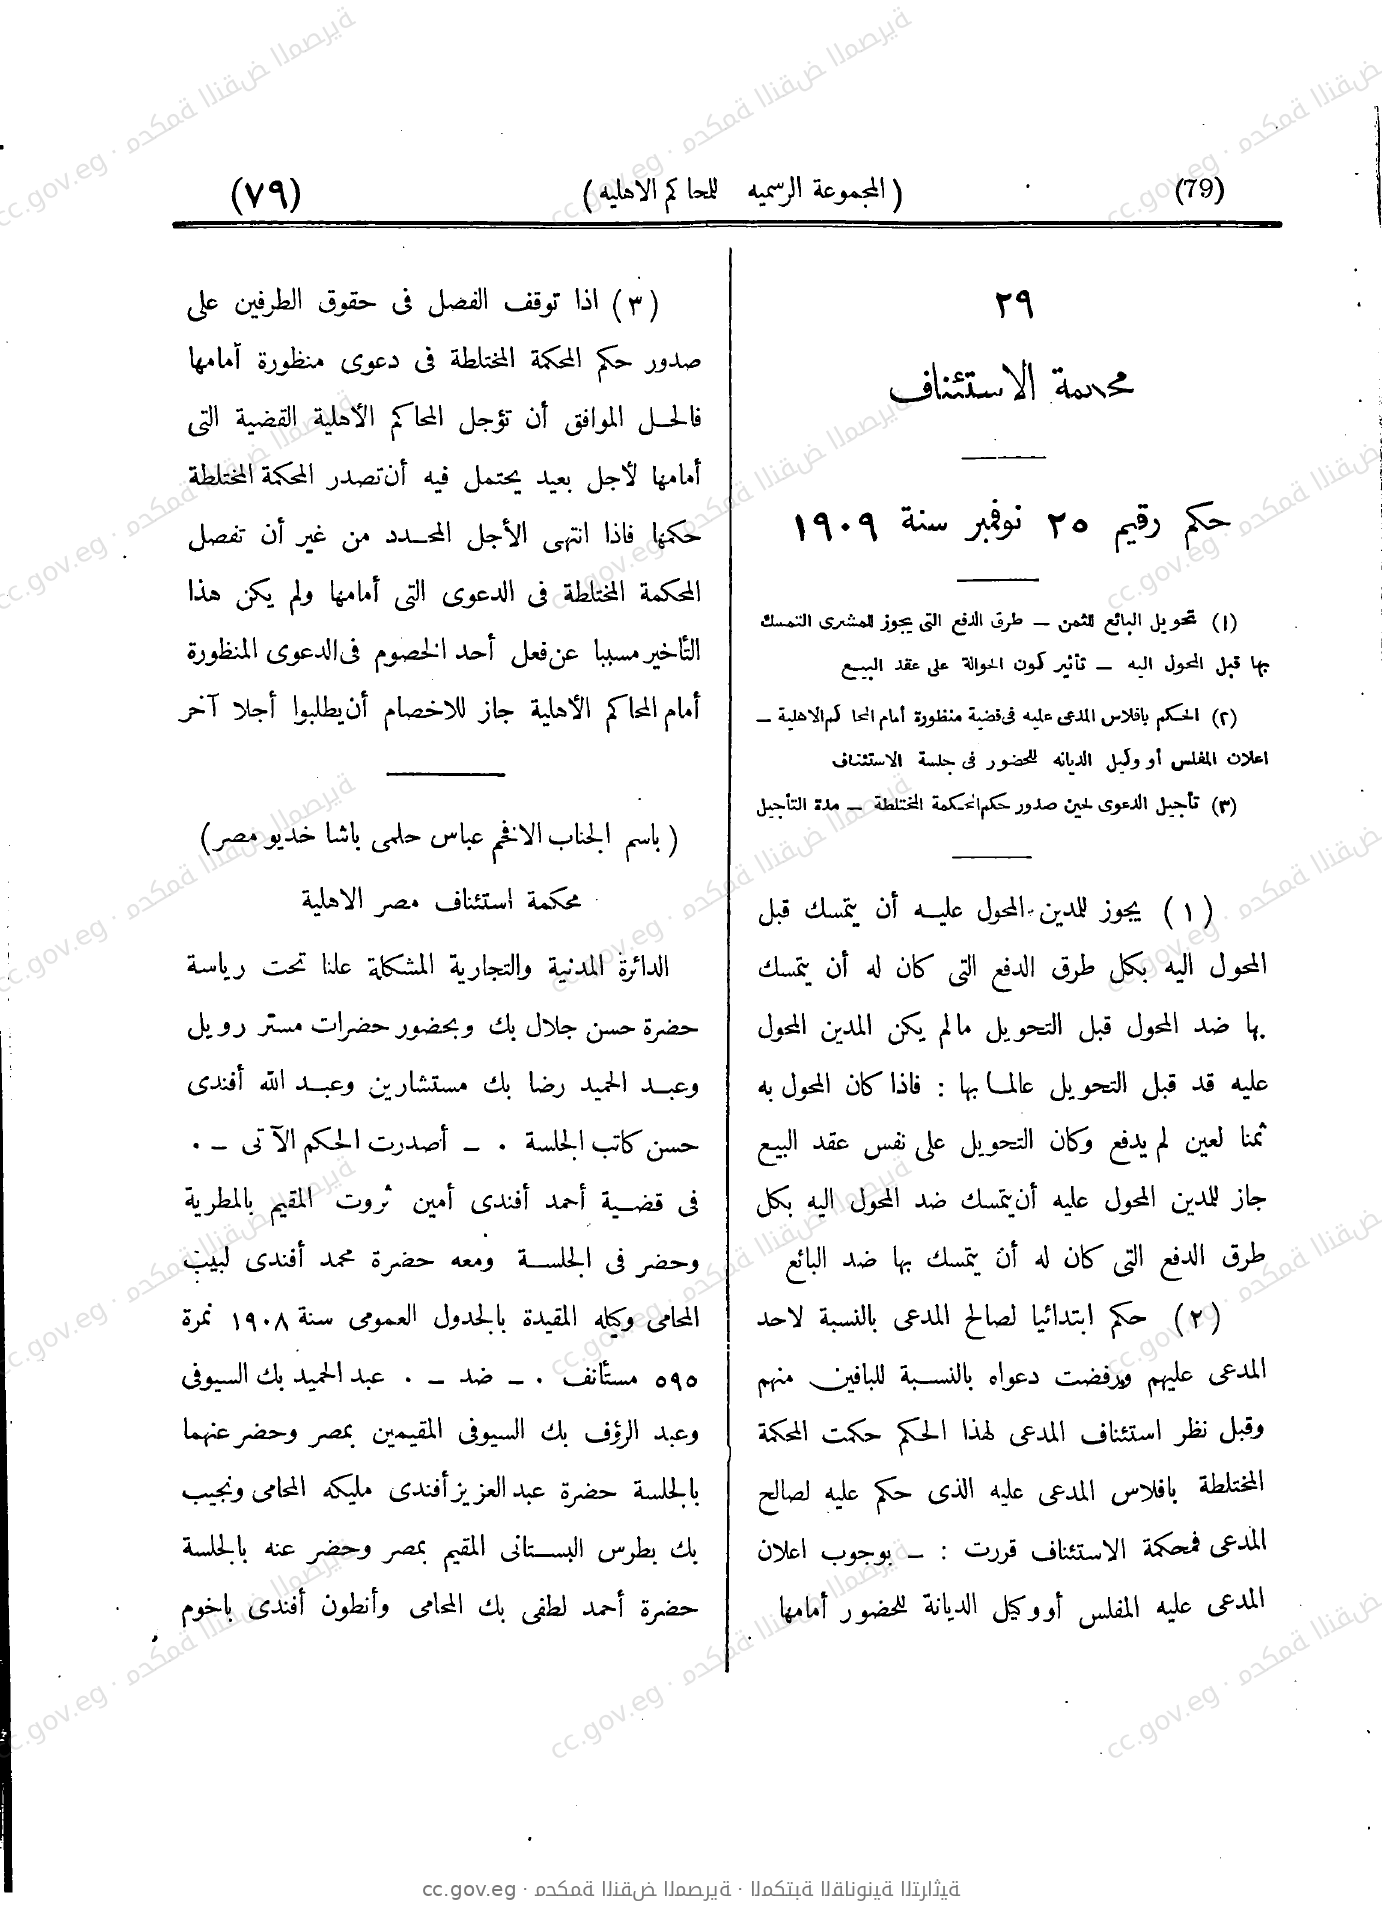 (79) (المجموعة الرسميه للمحاكم الاهليه) (٧٩)
٢٩
محكمة الاستئناف
حكم رقيم ٢٥ نوفمبر سنة ١٩٠٩
(١) تحويل البائع للثمن – طرق الدفع التى يجوز للمشترى التمسك
بها قبل المحول اليه – تأثير كون الحوالة على عقد البيع
(٢) الحكم بافلاس المدعى عليه فى قضية منظورة أمام المحاكم الاهلية –
اعلان المفلس أو وكيل الديانه للحضور فى جلسة الاستئناف
(٣) تأجيل الدعوى لحين صدور حكم المحكمة المختلطة – مدة التأجيل
(١) يجوز للمدين المحول عليه أن يتمسك قبل
المحول اليه بكل طرق الدفع التى كان له أن يتمسك
بها ضد المحول قبل التحويل مالم يكن المدين المحول
عليه قد قبل التحويل عالما بها : فاذا كان المحول به
ثمنا لعين لم يدفع وكان التحويل على نفس عقد البيع
جاز للمدين المحول عليه أن يتمسك ضد المحول اليه بكل
طرق الدفع التى كان له أن يتمسك بها ضد البائع
(٢) حكم ابتدائيا لصالح المدعى بالنسبة لاحد
المدعى عليهم ورفضت دعواه بالنسبة للباقين منهم
وقبل نظر استئناف المدعى لهذا الحكم حكمت المحكمة
المختلطة بافلاس المدعى عليه الذى حكم عليه لصالح
المدعى فمحكمة الاستئناف قررت : – بوجوب اعلان
المدعى عليه المفلس أو وكيل الديانة للحضور أمامها
(٣) اذا توقف الفصل فى حقوق الطرفين على
صدور حكم المحكمة المختلطة فى دعوى منظورة أمامها
فالحل الموافق أن تؤجل المحاكم الأهلية القضية التى
أمامها لأجل بعيد يحتمل فيه أن تصدر المحكمة المختلطة
حكمها فاذا انتهى الأجل المحدد من غير أن تفصل
المحكمة المختلطة فى الدعوى التى أمامها ولم يكن هذا
التأخير مسببا عن فعل أحد الخصوم فى الدعوى المنظورة
أمام المحاكم الأهلية جاز للاخصام أن يطلبوا أجلا آخر
(باسم الجناب الافخم عباس حلمى باشا خديو مصر)
محكمة استئناف مصر الاهلية
الدائرة المدنية والتجارية المشكلة علنا تحت رياسة
حضرة حسن جلال بك وبحضور حضرات مستر رويل
وعبد الحميد رضا بك مستشارين وعبد الله أفندى
حسن كاتب الجلسة . – أصدرت الحكم الآتى – .
فى قضية أحمد أفندى أمين ثروت المقيم بالمطرية
وحضر فى الجلسة ومعه حضرة محمد أفندى لبيب
المحامى وكيله المقيدة بالجدول العمومى سنة ١٩٠٨ نمرة
٥٩٥ مستأنف . – ضد – . عبد الحميد بك السيوفى
وعبد الرؤف بك السيوفى المقيمين بمصر وحضر عنهما
بالجلسة حضرة عبد العزيز أفندى مليكه المحامى ونجيب
بك بطرس البستانى المقيم بمصر وحضر عنه بالجلسة
حضرة أحمد لطفى بك المحامى وأنطون أفندى باخوم
cc.gov.eg · محكمة النقض المصرية · المكتبة القانونية التراثية